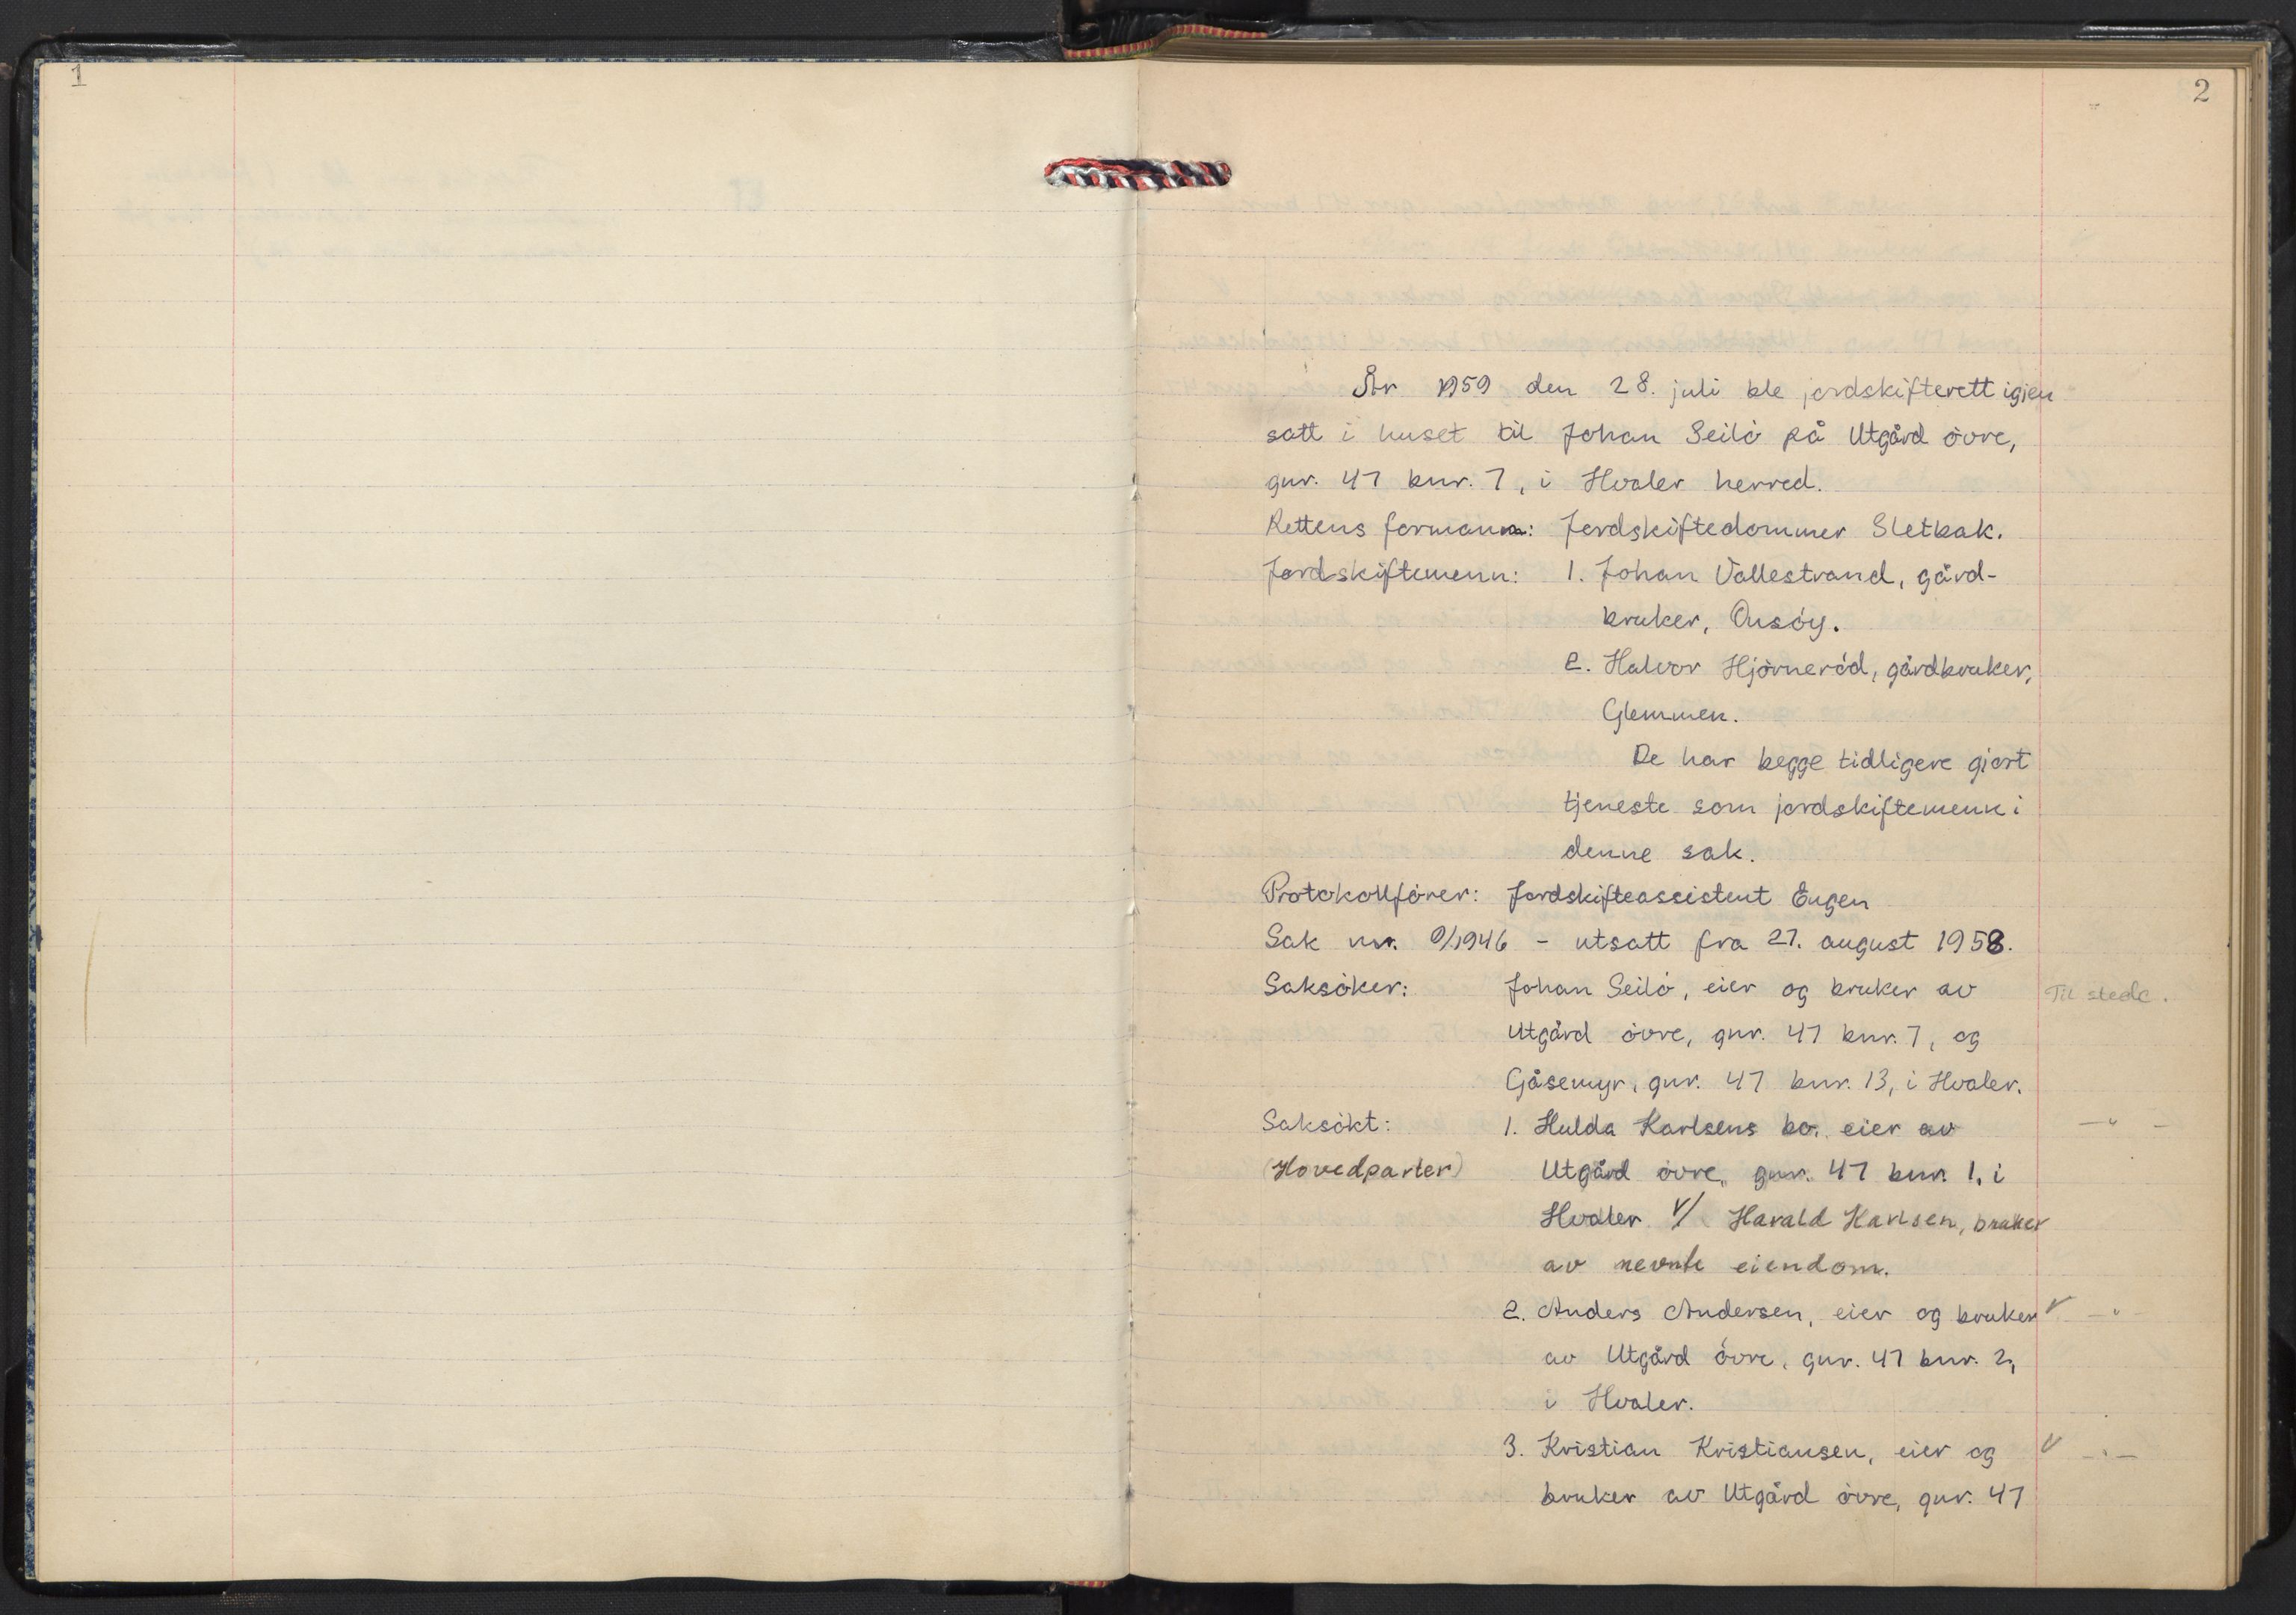 1
2
År 1959 den 28. juli ble jordskifterett igjen
satt i huset til Johan Seilö på Utgård övre,
gnr. 47 bnr. 7, i Hvaler herred.
Rettens formann: Jordskiftedommer Sletbak.
Jordskiftemenn: 1. Johan Vallestrand, gård-
bruker, Onsöy.
2. Halvor Hjörneröd, gårdbruker,
Glemmen.
De har begge tidligere gjort
tjeneste som jordskiftemenn i
denne sak.
Protokollförer: Jordskifteassistent Eugen
Sak nr. 9/1946 - utsatt fra 27. august 1958.
Saksöker: Johan Seilö, eier og bruker av Til stede.
Utgård övre, gnr. 47 bnr. 7, og
Gåsemyr, gnr. 47 bnr. 13, i Hvaler.
Saksökt: 1. Hulda Karlsens bo, eier av - " -
(Hovedparter) Utgård övre, gnr. 47 bnr. 1, i
Hvaler v/ Harald Karlsen, bruker
av nevnte eiendom.
2. Anders Andersen, eier og bruker v - " -
av Utgård övre, gnr. 47 bnr. 2,
i Hvaler.
3. Kristian Kristiansen, eier og v - " -
bruker av Utgård övre, gnr. 47